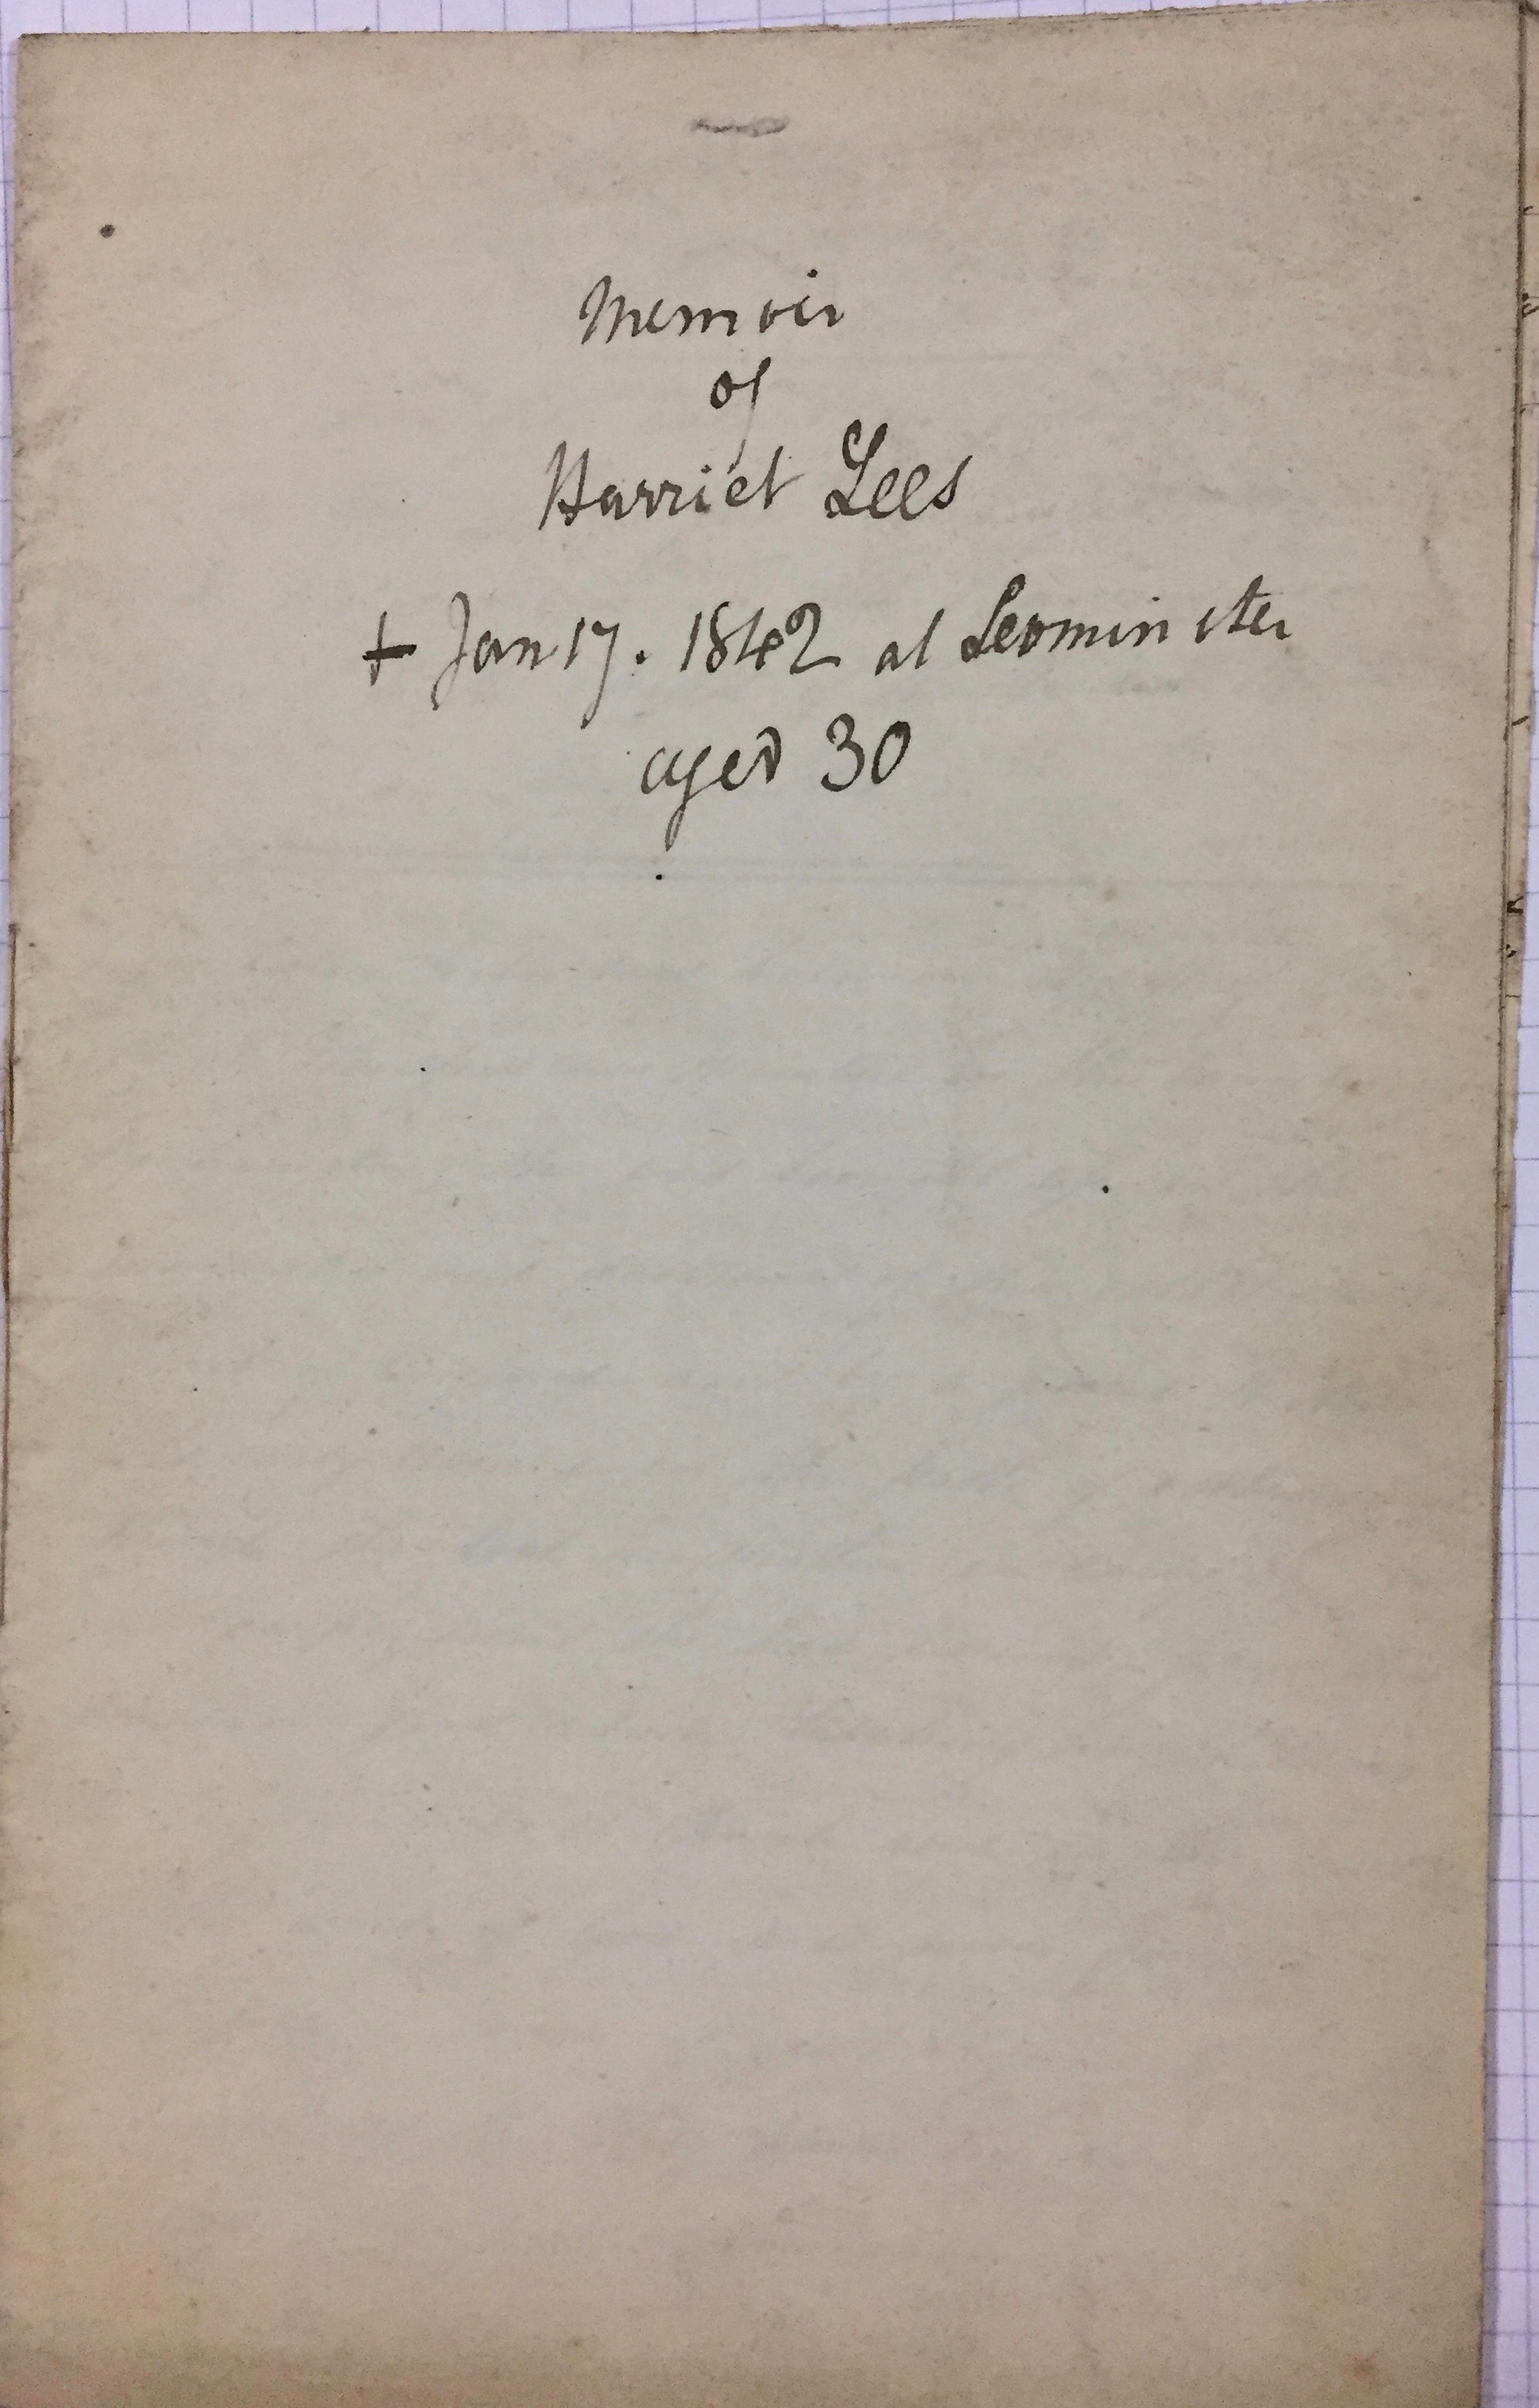 Memoir
of
Harriet Lees
+ Jan 17. 1842 at Leominster
aged 30